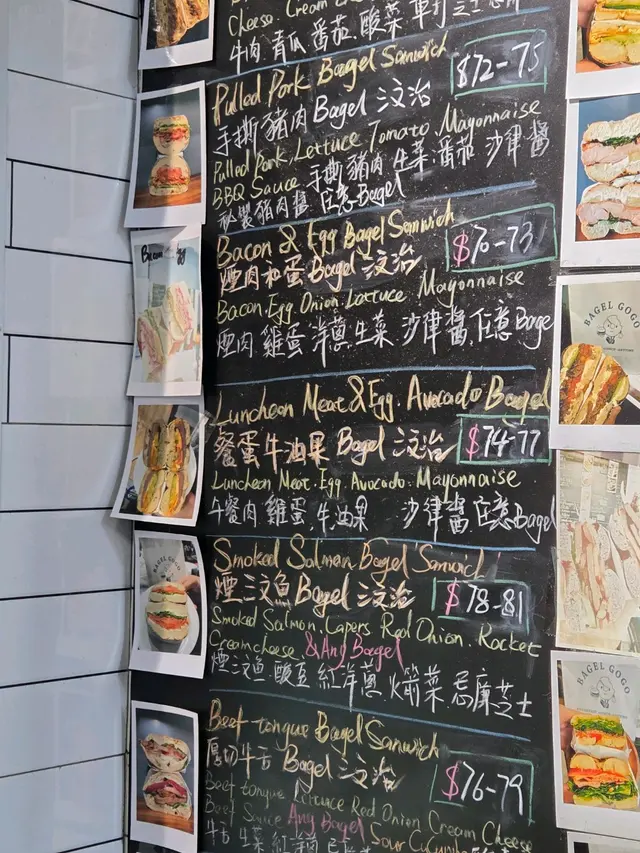 Cheese. Cream
牛肉.青瓜.番茄.酸菜.車打芝士
Pulled Pork Bagel Sanwich
$72-75
手撕豬肉Bagel 三文治
Pulled Pork. Lettuce Tomato. Mayonnaise
BBQ Sauce 手撕豬肉.生菜.番茄 沙律醬
秘製豬肉醬 任意Bagel
Bacon & Egg Bagel Sanwich
$70-73
煙肉和蛋 Bagel 三文治
Bacon. Egg. Onion. Lettuce. Mayonnaise
煙肉.雞蛋.洋蔥.生菜.沙律醬.任意Bage
Luncheon Meat & Egg. Avocado Bagel
$74-77
餐蛋牛油果 Bagel 三文治
Luncheon Meat. Egg. Avocado. Mayonnaise
午餐肉.雞蛋.牛油果 沙律醬 任意Bagel
Smoked Salmon Bagel Sanwich
$78-81
煙三文魚Bagel 三文治
Smoked Salmon. Capers Red Onion. Rocket
Creamcheese & Any Baegel
煙三文魚.酸豆.紅洋蔥.火箭菜.忌廉芝士
Beef tongue Bagel Sanwich
$76-79
厚切牛舌 Bagel 三文治
Beef tongue Lettuce Red Onion Cream Cheese
Beef Sauce Any Bagel Sour Cucumber
牛舌 生菜 紅洋蔥
BAGEL GOGO
BAGEL GOGO
BAGEL GOGO